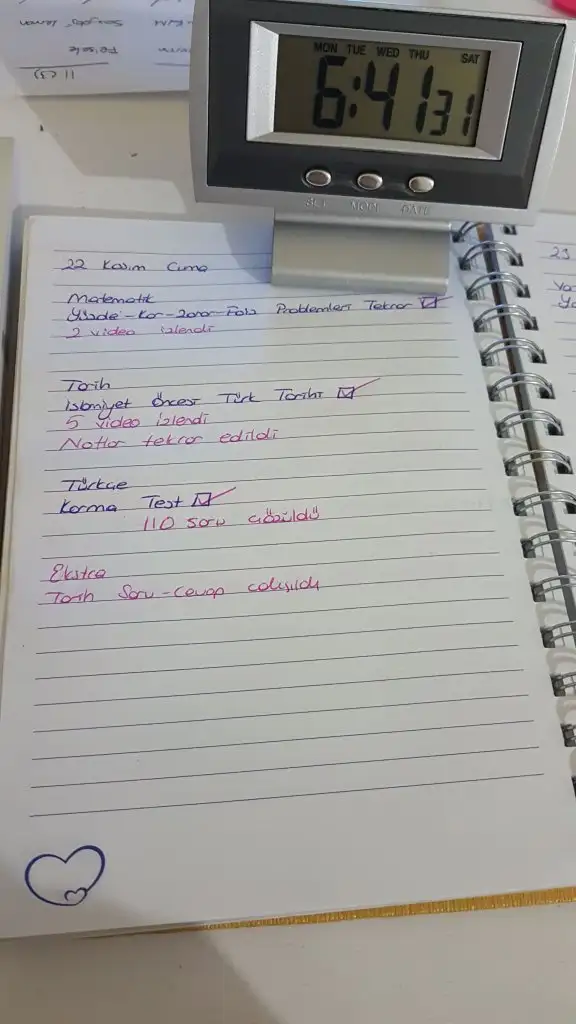 MON TUE WED THU SAT
6:41 31
SET MODE DATE
22 Kasım Cuma
Matematik
Yüzde-Kar-Zarar-Faiz Problemleri Tekrar
2 video izlendi
Tarih
İslamiyet Öncesi Türk Tarihi
5 video izlendi
Notlar tekrar edildi
Türkçe
Karma Test
110 soru çözüldü
Ekstra
Tarih Soru-Cevap çalışıldı
23